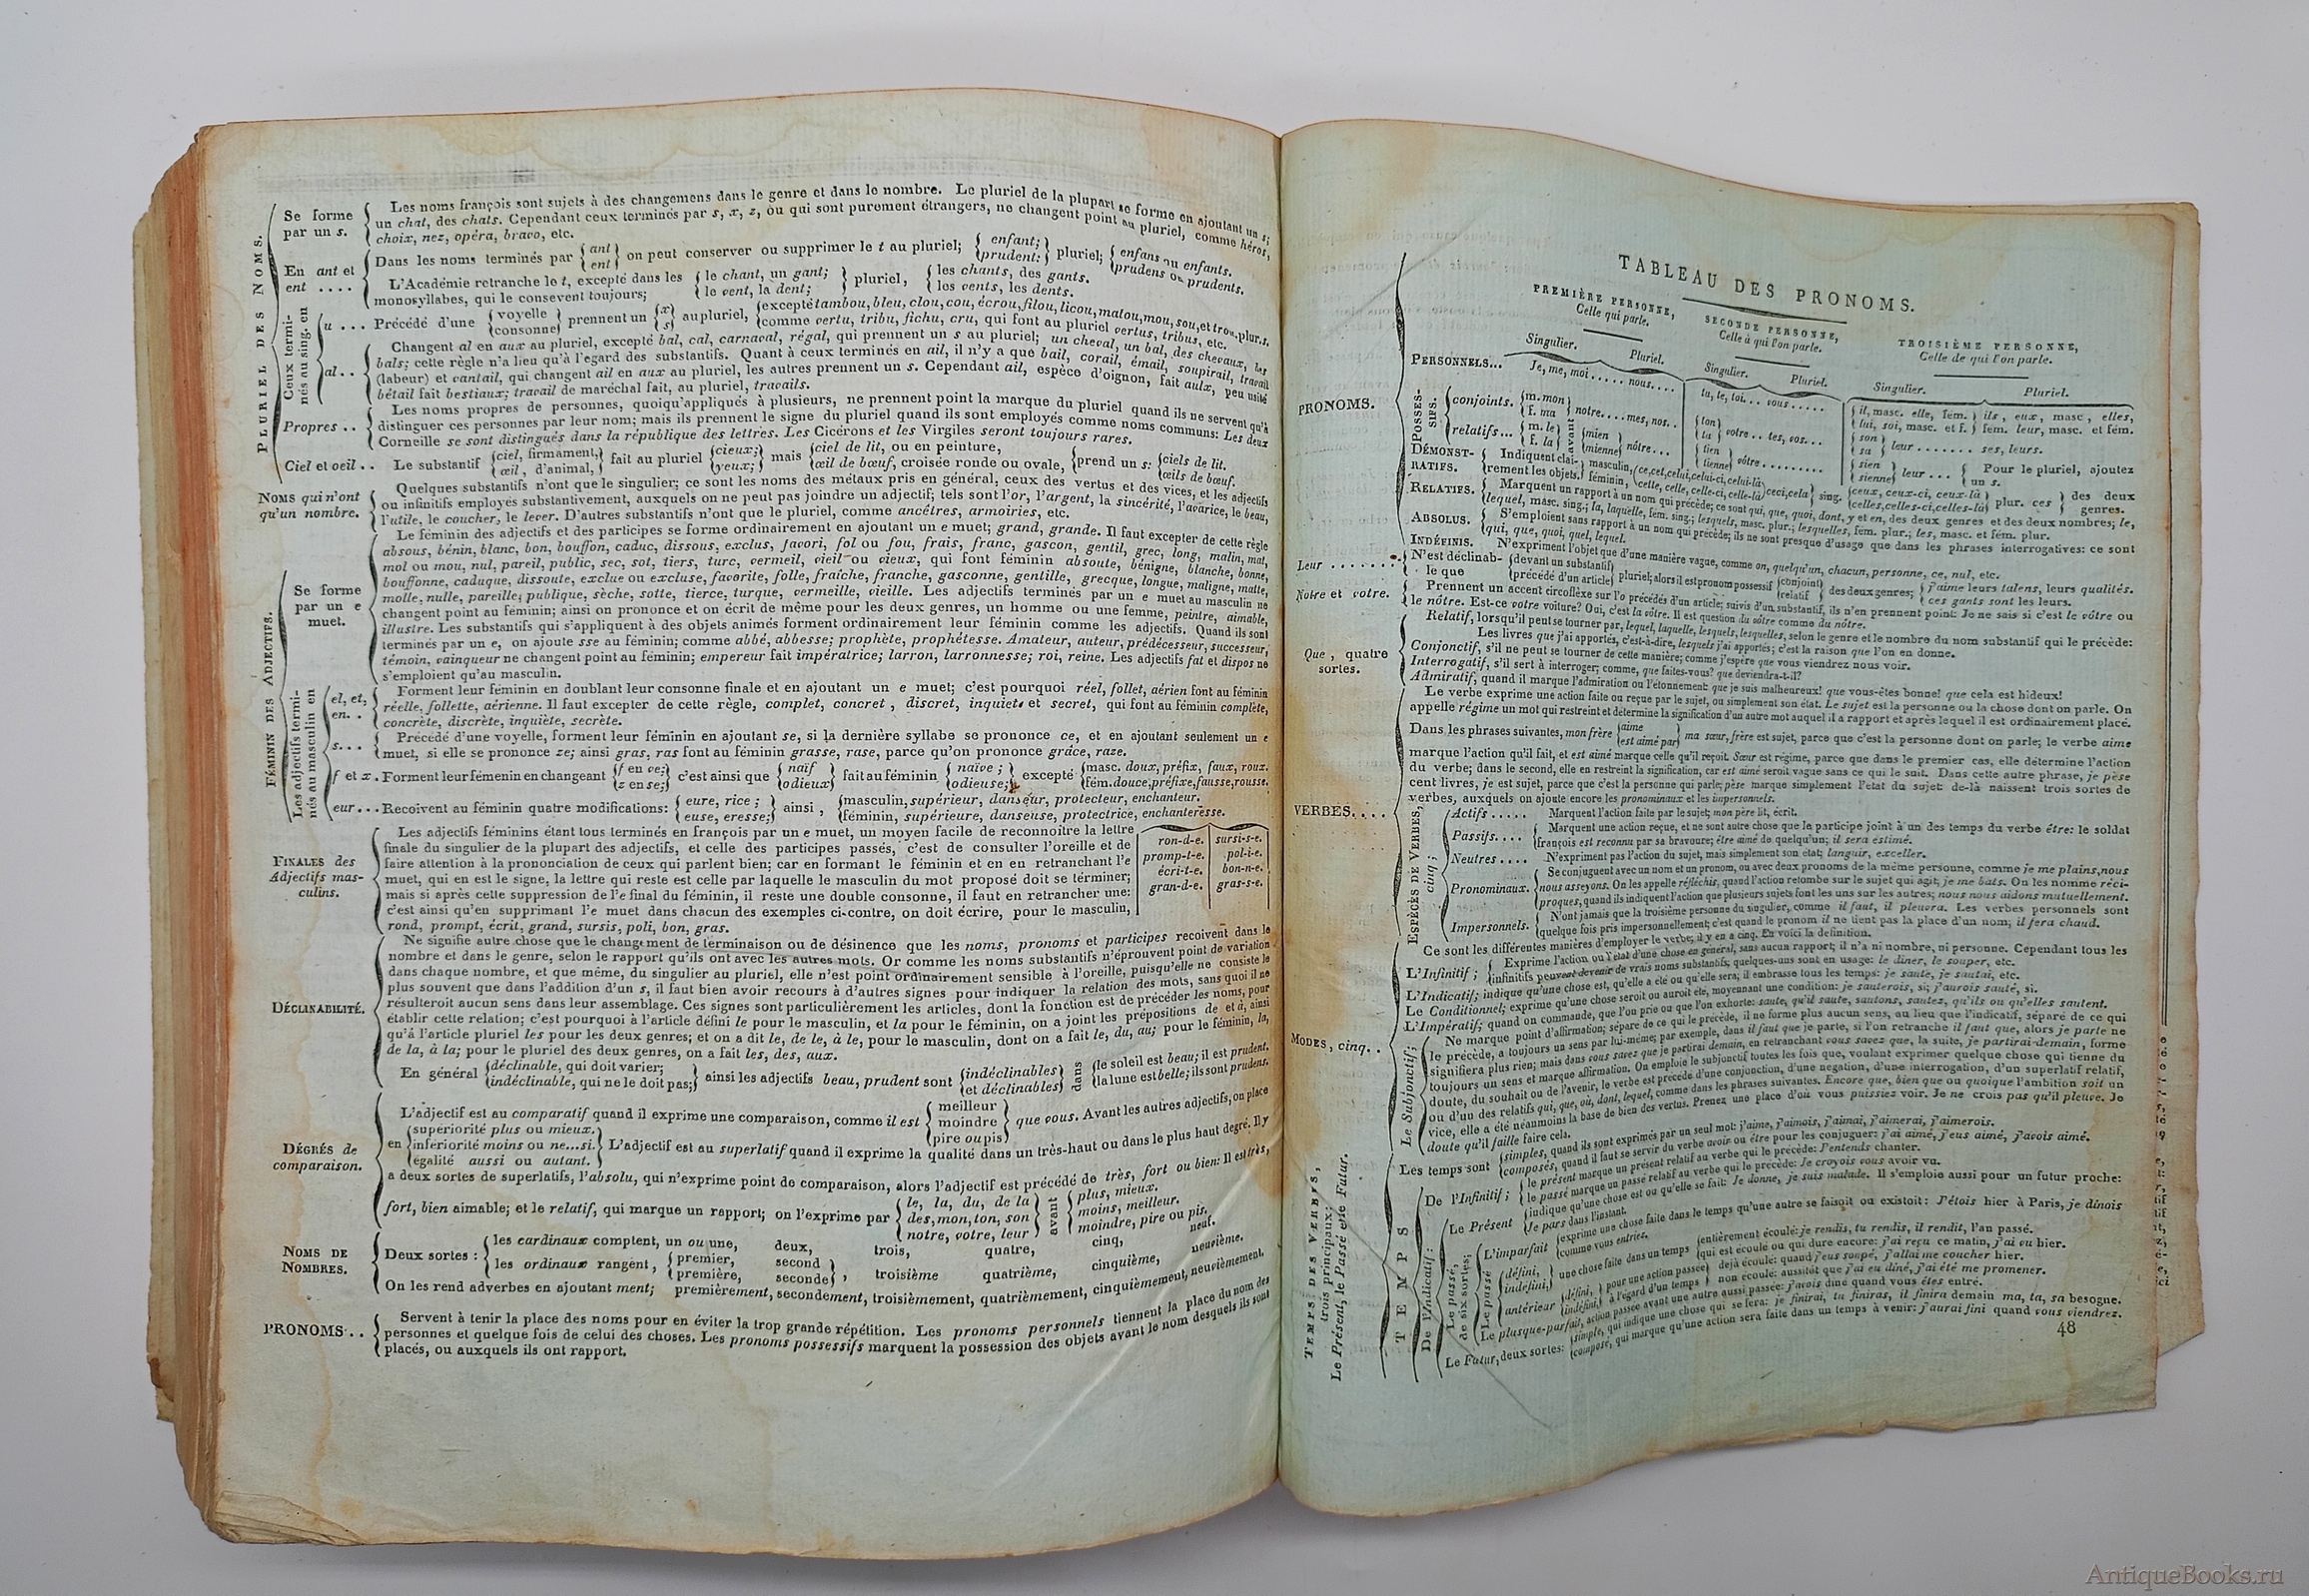 PLURIEL DES NOMS.
Se forme par un s.
Les noms françois sont sujets à des changemens dans le genre et dans le nombre. Le pluriel de la plupart se forme en ajoutant un s;
un chat, des chats. Cependant ceux terminés par s, x, z, ou qui sont purement étrangers, ne changent point au pluriel, comme héros,
choix, nez, opéra, bravo, etc.
En ant et ent ....
Dans les noms terminés par { ant ent } on peut conserver ou supprimer le t au pluriel; { enfant; prudent: } pluriel; { enfans ou enfants. prudens ou prudents.
L'Académie retranche le t, excepté dans les { le chant, un gant; } pluriel, { les chants, des gants.
monosyllabes, qui le consevent toujours; { le vent, la dent; } { les vents, les dents.
Ceux terminés au sing. en
u ... Précédé d'une { voyelle consonne } prennent un { x s } au pluriel, { excepté tambou, bleu, clou, cou, écrou, filou, licou, matou, mou, sou, et trou, plur. s.
comme vertu, tribu, fichu, cru, qui font au pluriel vertus, tribus, etc.
al ..
Changent al en aux au pluriel, excepté bal, cal, carnaval, régal, qui prennent un s au pluriel; un cheval, un bal, des chevaux, les
bals; cette règle n'a lieu qu'à l'egard des substantifs. Quant à ceux terminés en ail, il n'y a que bail, corail, émail, soupirail, travail
(labeur) et vantail, qui changent ail en aux au pluriel, les autres prennent un s. Cependant ail, espèce d'oignon, fait aulx, peu usité
bétail fait bestiaux; travail de maréchal fait, au pluriel, travails.
Propres ..
Les noms propres de personnes, quoiqu'appliqués à plusieurs, ne prennent point la marque du pluriel quand ils ne servent qu'à
distinguer ces personnes par leur nom; mais ils prennent le signe du pluriel quand ils sont employés comme noms communs: Les deux
Corneille se sont distingués dans la république des lettres. Les Cicérons et les Virgiles seront toujours rares.
Ciel et oeil .. Le substantif { ciel, firmament, œil, d'animal, } fait au pluriel { cieux; yeux; } mais { ciel de lit, ou en peinture, œil de bœuf, croisée ronde ou ovale, { prend un s: { ciels de lit. œils de bœuf.
Noms qui n'ont qu'un nombre.
Quelques substantifs n'ont que le singulier; ce sont les noms des métaux pris en général, ceux des vertus et des vices, et les adjectifs
ou infinitifs employés substantivement, auxquels on ne peut pas joindre un adjectif; tels sont l'or, l'argent, la sincérité, l'avarice, le beau,
l'utile, le coucher, le lever. D'autres substantifs n'ont que le pluriel, comme ancêtres, armoiries, etc.
FÉMININ DES ADJECTIFS.
Se forme par un e muet.
Le féminin des adjectifs et des participes se forme ordinairement en ajoutant un e muet; grand, grande. Il faut excepter de cette règle
absous, bénin, blanc, bon, bouffon, caduc, dissous, exclus, favori, fol ou fou, frais, franc, gascon, gentil, grec, long, malin, mat,
mol ou mou, nul, pareil, public, sec, sot, tiers, turc, vermeil, vieil ou vieux, qui font féminin absoute, bénigne, blanche, bonne,
bouffonne, caduque, dissoute, exclue ou excluse, favorite, folle, fraîche, franche, gasconne, gentille, grecque, longue, maligne, matte,
molle, nulle, pareille, publique, sèche, sotte, tierce, turque, vermeille, vieille. Les adjectifs terminés par un e muet au masculin ne
changent point au féminin; ainsi on prononce et on écrit de même pour les deux genres, un homme ou une femme, peintre, aimable,
illustre. Les substantifs qui s'appliquent à des objets animés forment ordinairement leur féminin comme les adjectifs. Quand ils sont
terminés par un e, on ajoute sse au féminin; comme abbé, abbesse; prophète, prophétesse. Amateur, auteur, prédécesseur, successeur,
témoin, vainqueur ne changent point au féminin; empereur fait impératrice; larron, larronnesse; roi, reine. Les adjectifs fat et dispos ne
s'emploient qu'au masculin.
Les adjectifs terminés au masculin en
el, et, en..
Forment leur féminin en doublant leur consonne finale et en ajoutant un e muet; c'est pourquoi réel, follet, aérien font au féminin
réelle, follette, aérienne. Il faut excepter de cette règle, complet, concret, discret, inquiet et secret, qui font au féminin complète,
concrète, discrète, inquiète, secrète.
s...
Précédé d'une voyelle, forment leur féminin en ajoutant se, si la dernière syllabe se prononce ce, et en ajoutant seulement un e
muet, si elle se prononce ze; ainsi gras, ras font au féminin grasse, rase, parce qu'on prononce grâce, raze.
f et x. Forment leur fémenin en changeant { f en ve; z en se; } c'est ainsi que { naïf odieux } fait au féminin { naïve; odieuse; } excepté { masc. doux, préfix, faux, roux. fém. douce, préfixe, fausse, rousse.
eur ... Recoivent au féminin quatre modifications: { eure, rice; euse, eresse; } ainsi, { masculin, supérieur, danseur, protecteur, enchanteur. féminin, supérieure, danseuse, protectrice, enchanteresse.
FINALES des Adjectifs masculins.
Les adjectifs féminins étant tous terminés en françois par un e muet, un moyen facile de reconnoître la lettre
finale du singulier de la plupart des adjectifs, et celle des participes passés, c'est de consulter l'oreille et de
faire attention à la prononciation de ceux qui parlent bien; car en formant le féminin et en en retranchant l'e
muet, qui en est le signe, la lettre qui reste est celle par laquelle le masculin du mot proposé doit se terminer;
mais si après cette suppression de l'e final du féminin, il reste une double consonne, il faut en retrancher une:
c'est ainsi qu'en supprimant l'e muet dans chacun des exemples ci-contre, on doit écrire, pour le masculin,
rond, prompt, écrit, grand, sursis, poli, bon, gras.
ron-d-e. sursi-s-e.
promp-t-e. pol-i-e.
écri-t-e. bon-n-e.
gran-d-e. gras-s-e.
DÉCLINABILITÉ.
Ne signifie autre chose que le changement de terminaison ou de désinence que les noms, pronoms et participes recoivent dans le
nombre et dans le genre, selon le rapport qu'ils ont avec les autres mots. Or comme les noms substantifs n'éprouvent point de variation
dans chaque nombre, et que même, du singulier au pluriel, elle n'est point ordinairement sensible à l'oreille, puisqu'elle ne consiste le
plus souvent que dans l'addition d'un s, il faut bien avoir recours à d'autres signes pour indiquer la relation des mots, sans quoi il ne
résulteroit aucun sens dans leur assemblage. Ces signes sont particulièrement les articles, dont la fonction est de précéder les noms, pour
établir cette relation; c'est pourquoi à l'article défini le pour le masculin, et la pour le féminin, on a joint les prépositions de et à, ainsi
qu'à l'article pluriel les pour les deux genres; et on a dit le, de le, à le, pour le masculin, dont on a fait le, du, au; pour le féminin, la,
de la, à la; pour le pluriel des deux genres, on a fait les, des, aux.
En général { déclinable, qui doit varier; indéclinable, qui ne le doit pas; } ainsi les adjectifs beau, prudent sont { indéclinables et déclinables } dans { le soleil est beau; il est prudent. la lune est belle; ils sont prudens.
DÉGRÉS de comparaison.
L'adjectif est au comparatif quand il exprime une comparaison, comme il est { meilleur moindre pire ou pis } que vous. Avant les autres adjectifs, on place
en { supériorité plus ou mieux. infériorité moins ou ne...si. égalité aussi ou autant. } L'adjectif est au superlatif quand il exprime la qualité dans un très-haut ou dans le plus haut degré. Il y
a deux sortes de superlatifs, l'absolu, qui n'exprime point de comparaison, alors l'adjectif est précédé de très, fort ou bien: Il est très,
fort, bien aimable; et le relatif, qui marque un rapport; on l'exprime par { le, la, du, de la des, mon, ton, son notre, votre, leur } avant { plus, mieux. moins, meilleur. moindre, pire ou pis.
NOMS DE NOMBRES.
Deux sortes: { les cardinaux comptent, un ou une, deux, trois, quatre, cinq, neuf.
les ordinaux rangent, { premier, première, second seconde }, troisième quatrième, cinquième, neuvième.
On les rend adverbes en ajoutant ment; premièrement, secondement, troisièmement, quatrièmement, cinquièmement, neuvièmement.
PRONOMS ..
Servent à tenir la place des noms pour en éviter la trop grande répétition. Les pronoms personnels tiennent la place du nom des
personnes et quelque fois de celui des choses. Les pronoms possessifs marquent la possession des objets avant le nom desquels ils sont
placés, ou auxquels ils ont rapport.
TABLEAU DES PRONOMS.
PREMIÈRE PERSONNE, Celle qui parle.
SECONDE PERSONNE, Celle à qui l'on parle.
TROISIÈME PERSONNE, Celle de qui l'on parle.
Singulier. Pluriel. Singulier. Pluriel. Singulier. Pluriel.
PRONOMS.
PERSONNELS... Je, me, moi ..... nous.... tu, te, toi... vous ..... { il, masc. elle, fém. } ils, eux, masc, elles,
lui, soi, masc. et f. } fém. leur, masc. et fém.
POSSESSIFS.
conjoints. { m. mon f. ma } notre.... mes, nos.. { ton ta } votre .. tes, vos... { son sa } leur ....... ses, leurs.
relatifs... { m. le f. la } avant { mien mienne } nôtre... { tien tienne } vôtre ......... { sien sienne } leur ... { Pour le pluriel, ajoutez un s.
DÉMONSTRATIFS. { Indiquent clairement les objets. { masculin, féminin, { ce, cet, celui, celui-ci, celui-là cette, celle, celle-ci, celle-là } ceci, cela } sing. { ceux, ceux-ci, ceux-là celles, celles-ci, celles-là } plur. ces } des deux genres.
RELATIFS. { Marquent un rapport à un nom qui précède; ce sont qui, que, quoi, dont, y et en, des deux genres et des deux nombres; le,
lequel, masc. sing.; la, laquelle, fém. sing.; lesquels, masc. plur.; lesquelles, fém. plur.; les, masc. et fém. plur.
ABSOLUS. { S'emploient sans rapport à un nom qui précède; ils ne sont presque d'usage que dans les phrases interrogatives: ce sont
qui, que, quoi, quel, lequel.
INDÉFINIS. N'expriment l'objet que d'une manière vague, comme on, quelqu'un, chacun, personne, ce, nul, etc.
Leur ....... { N'est déclinable que { devant un substantif précédé d'un article } pluriel; alors il est pronom possessif { conjoint relatif } des deux genres; { j'aime leurs talens, leurs qualités. ces gants sont les leurs.
Notre et votre. { Prennent un accent circoflèxe sur l'o précédés d'un article; suivis d'un substantif, ils n'en prennent point: Je ne sais si c'est le vôtre ou
le nôtre. Est-ce votre voiture? Oui, c'est la vôtre. Il est question du vôtre comme du nôtre.
Que, quatre sortes.
Relatif, lorsqu'il peut se tourner par, lequel, laquelle, lesquels, lesquelles, selon le genre et le nombre du nom substantif qui le précède:
Les livres que j'ai apportés, c'est-à-dire, lesquels j'ai apportés; c'est la raison que l'on en donne.
Conjonctif, s'il ne peut se tourner de cette manière; comme j'espère que vous viendrez nous voir.
Interrogatif, s'il sert à interroger; comme, que faites-vous? que deviendra-t-il?
Admiratif, quand il marque l'admiration ou l'étonnement: que je suis malheureux! que vous-êtes bonne! que cela est hideux!
VERBES....
Le verbe exprime une action faite ou reçue par le sujet, ou simplement son état. Le sujet est la personne ou la chose dont on parle. On
appelle régime un mot qui restreint et détermine la signification d'un autre mot auquel il a rapport et après lequel il est ordinairement placé.
Dans les phrases suivantes, mon frère { aime est aimé par } ma sœur, frère est sujet, parce que c'est la personne dont on parle; le verbe aime
marque l'action qu'il fait, et est aimé marque celle qu'il reçoit. Sœur est régime, parce que dans le premier cas, elle détermine l'action
du verbe; dans le second, elle en restreint la signification, car est aimé seroit vague sans ce qui le suit. Dans cette autre phrase, je pèse
cent livres, je est sujet, parce que c'est la personne qui parle; pèse marque simplement l'etat du sujet: de-là naissent trois sortes de
verbes, auxquels on ajoute encore les pronominaux et les impersonnels.
ESPÈCES DE VERBES, cinq;
Actifs ..... Marquent l'action faite par le sujet; mon père lit, écrit.
Passifs.... { Marquent une action reçue, et ne sont autre chose que le participe joint à un des temps du verbe être: le soldat
françois est reconnu par sa bravoure; être aimé de quelqu'un; il sera estimé.
Neutres .... N'expriment pas l'action du sujet, mais simplement son état; languir, exceller.
Pronominaux. { Se conjuguent avec un nom et un pronom, ou avec deux pronoms de la même personne, comme je me plains, nous
nous asseyons. On les appelle réfléchis, quand l'action retombe sur le sujet qui agit; je me bats. On les nomme réci-
proques, quand ils indiquent l'action que plusieurs sujets font les uns sur les autres; nous nous aidons mutuellement.
Impersonnels. { N'ont jamais que la troisième personne du singulier, comme il faut, il pleuvra. Les verbes personnels sont
quelque fois pris impersonnellement; c'est quand le pronom il ne tient pas la place d'un nom; il fera chaud.
MODES, cinq..
Ce sont les différentes manières d'employer le verbe; il y en a cinq. En voici la définition.
L'Infinitif; { Exprime l'action ou l'état d'une chose en général, sans aucun rapport; il n'a ni nombre, ni personne. Cependant tous les
infinitifs peuvent devenir de vrais noms substantifs; quelques-uns sont en usage: le dîner, le souper, etc.
L'Indicatif; indique qu'une chose est, qu'elle a été ou qu'elle sera; il embrasse tous les temps: je saute, je sautai, etc.
Le Conditionnel; exprime qu'une chose seroit ou auroit été, moyennant une condition: je sauterois, si; j'aurois sauté, si.
L'Impératif; quand on commande, que l'on prie ou que l'on exhorte: saute, qu'il saute, sautons, sautez, qu'ils ou qu'elles sautent.
Le Subjonctif;
Ne marque point d'affirmation; séparé de ce qui le précède, il ne forme plus aucun sens, au lieu que l'indicatif, séparé de ce qui
le précède, a toujours un sens par lui-même; par exemple, dans il faut que je parte, si l'on retranche il faut que, alors je parte ne
signifiera plus rien; mais dans vous savez que je partirai demain, en retranchant vous savez que, la suite, je partirai-demain, forme
toujours un sens et marque affirmation. On emploie le subjonctif toutes les fois que, voulant exprimer quelque chose qui tienne du
doute, du souhait ou de l'avenir, le verbe est précédé d'une conjonction, d'une negation, d'une interrogation, d'un superlatif relatif,
ou d'un des relatifs qui, que, où, dont, lequel, comme dans les phrases suivantes. Encore que, bien que ou quoique l'ambition soit un
vice, elle a été néaumoins la base de bien des vertus. Prenez une place d'où vous puissiez voir. Je ne crois pas qu'il pleuve. Je
doute qu'il faille faire cela.
TEMPS DES VERBES, trois principaux;
Le Présent, le Passé et le Futur.
TEMPS
Les temps sont { simples, quand ils sont exprimés par un seul mot: j'aime, j'aimois, j'aimai, j'aimerai, j'aimerois.
composés, quand il faut se servir du verbe avoir ou être pour les conjuguer: j'ai aimé, j'eus aimé, j'avois aimé.
De l'Infinitif; { le présent marque un présent relatif au verbe qui le précède: J'entends chanter.
le passé marque un passé relatif au verbe qui le précède: Je croyois vous avoir vu.
De l'Indicatif:
Le Présent { indique qu'une chose est ou qu'elle se fait: Je donne, je suis malade. Il s'emploie aussi pour un futur proche:
Je pars dans l'instant.
Le passé, de six sortes;
L'imparfait { exprime une chose faite dans le temps qu'une autre se faisoit ou existoit: J'étois hier à Paris, je dînois
comme vous entriez.
Le passé { défini, indéfini, } une chose faite dans un temps { entièrement écoulé: je rendis, tu rendis, il rendit, l'an passé.
qui est écoulé ou qui dure encore: j'ai reçu ce matin, j'ai vu hier.
antérieur { défini, indéfini, } pour une action passée à l'égard d'un temps } déjà écoulé: quand j'eus soupé, j'allai me coucher hier.
non écoulé: aussitôt que j'ai eu dîné, j'ai été me promener.
Le plusque-parfait, action passée avant une autre aussi passée: j'avois diné quand vous êtes entré.
Le Futur, deux sortes: { simple, qui indique une chose qui se fera: je finirai, tu finiras, il finira demain ma, ta, sa besogne.
composé, qui marque qu'une action sera faite dans un temps à venir: j'aurai fini quand vous viendrez.
48
AntiqueBooks.ru